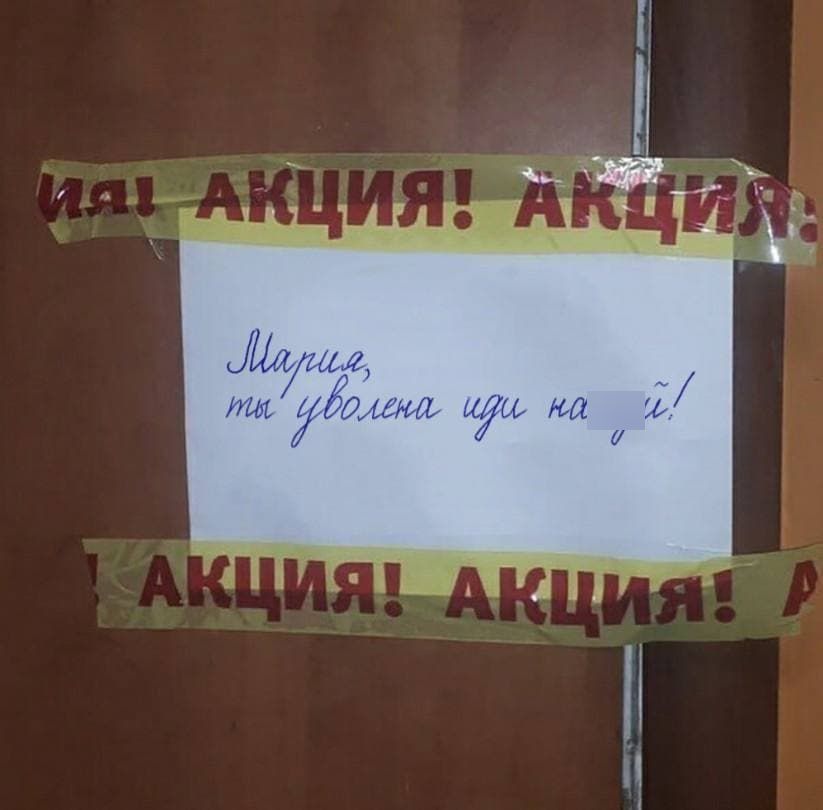 ИЯ! АКЦИЯ! АКЦИЯ!
Мария,
ты уволена иди
! АКЦИЯ! АКЦИЯ! А